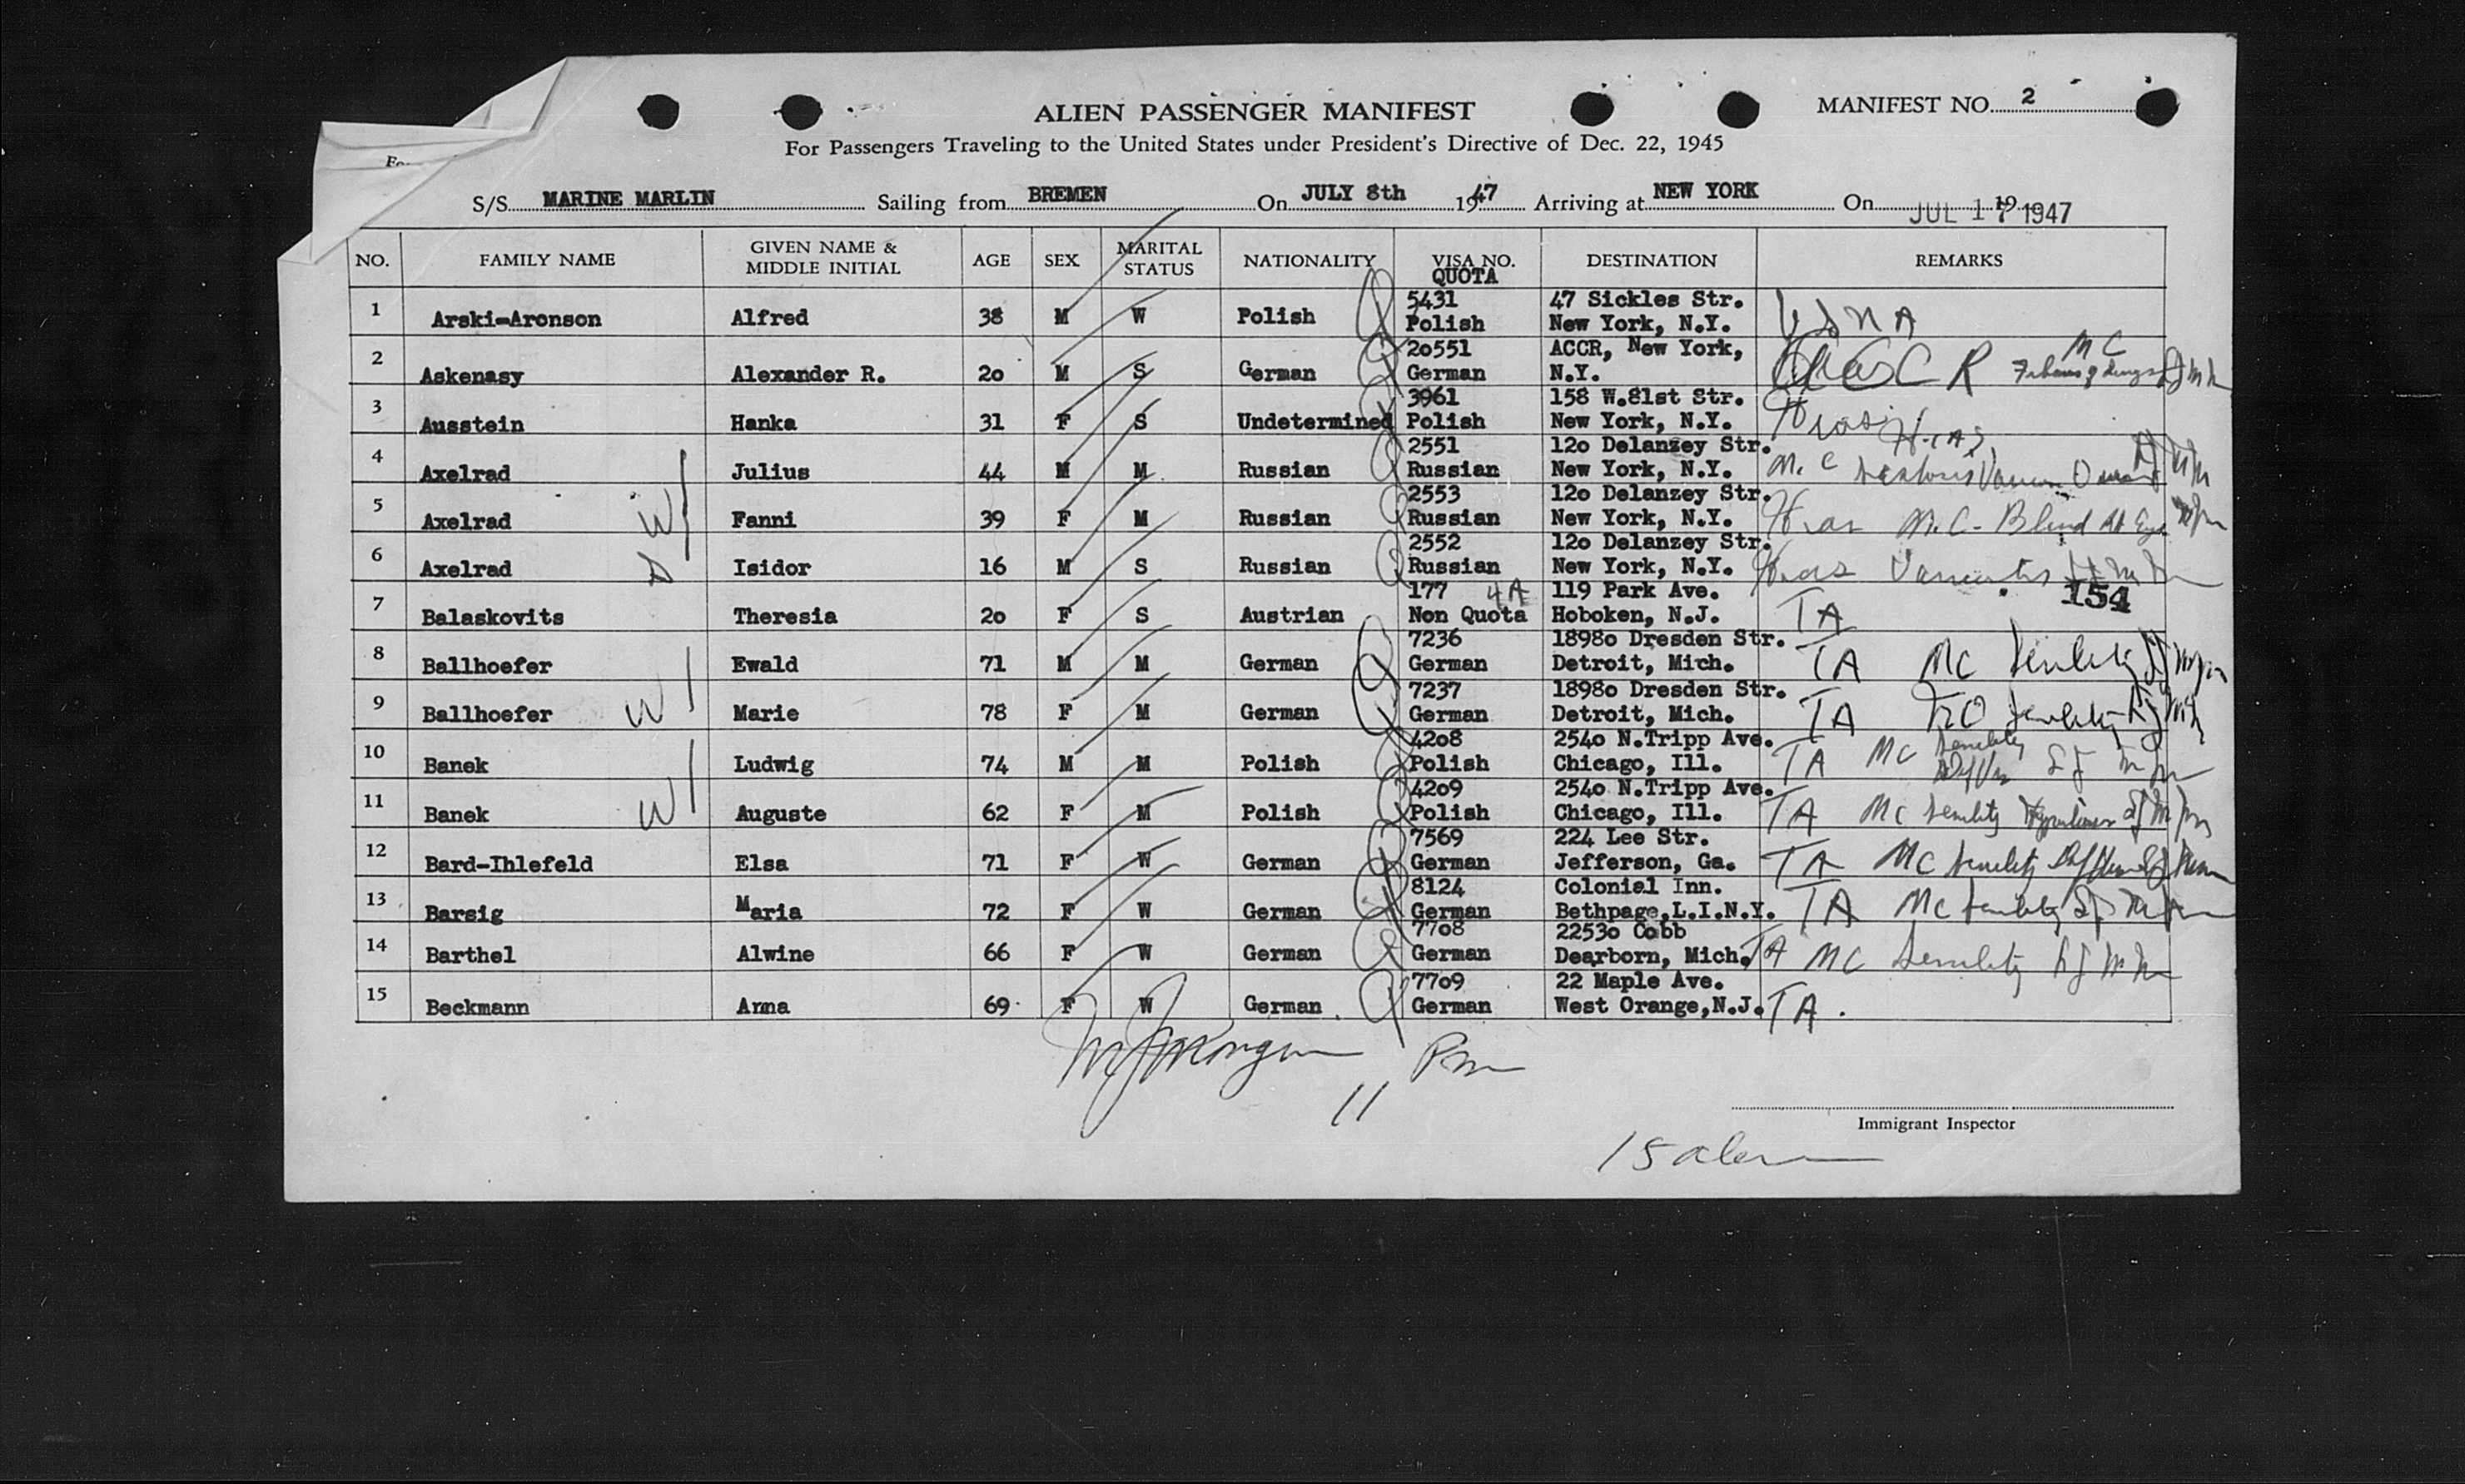 ALIEN PASSENGER MANIFEST
MANIFEST NO. 2
For Passengers Traveling to the United States under President's Directive of Dec. 22, 1945
S/S MARINE MARLIN Sailing from BREMEN On JULY 8th 1947 Arriving at NEW YORK On 19 JUL 17 1947
NO. FAMILY NAME GIVEN NAME & MIDDLE INITIAL AGE SEX MARITAL STATUS NATIONALITY VISA NO. QUOTA DESTINATION REMARKS
1 Arski-Aronson Alfred 38 M W Polish 5431 Polish 47 Sickles Str. New York, N.Y. USNA
2 Askenasy Alexander R. 2o M S German 20551 German ACCR, New York, N.Y. CR MC
3 Ausstein Hanka 31 F S Undetermined 3961 Polish 158 W.81st Str. New York, N.Y. Hias Hias
4 Axelrad Julius 44 M M Russian 2551 Russian 12o Delanzey Str. New York, N.Y. M.C
5 Axelrad W Fanni 39 F M Russian 2553 Russian 12o Delanzey Str. New York, N.Y. Hias M.C. Blind
6 Axelrad Isidor 16 M S Russian 2552 Russian 12o Delanzey Str. New York, N.Y. Hias
7 Balaskovits Theresia 2o F S Austrian 177 4A Non Quota 119 Park Ave. Hoboken, N.J. TA 154
8 Ballhoefer Ewald 71 M M German 7236 German 1898o Dresden Str. Detroit, Mich. TA MC Senility
9 Ballhoefer W Marie 78 F M German 7237 German 1898o Dresden Str. Detroit, Mich. TA Senility
10 Banek Ludwig 74 M M Polish 42o8 Polish 254o N.Tripp Ave. Chicago, Ill. TA MC Senility
11 Banek W Auguste 62 F M Polish 42o9 Polish 254o N.Tripp Ave. Chicago, Ill. TA MC Senility
12 Bard-Ihlefeld Elsa 71 F W German 7569 German 224 Lee Str. Jefferson, Ga. TA MC Senility
13 Barsig Maria 72 F W German 8124 German Colonial Inn. Bethpage,L.I.N.Y. TA MC Senility
14 Barthel Alwine 66 F W German 77o8 German 2253o Cobb Dearborn, Mich. TA MC Senility
15 Beckmann Anna 69 F W German 77o9 German 22 Maple Ave. West Orange,N.J. TA
11
Immigrant Inspector
15